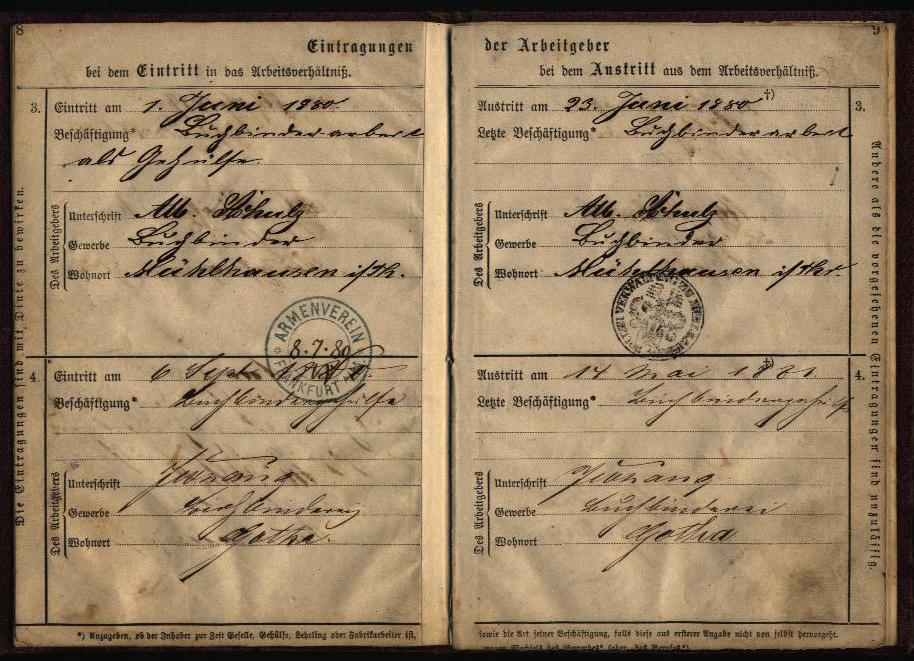 8
Eintragungen
bei dem Eintritt in das Arbeitsverhältniß.
3. Eintritt am 1. Juni 1880.
Beschäftigung* Buchbinderarbeit
als Gehülfe.
Des Arbeitgebers
Unterschrift Alb. Schulz
Gewerbe Buchbinder
Wohnort Mühlhausen i/Th.
ARMENVEREIN
8.7.80
FRANKFURT
4. Eintritt am 6 Sept
Beschäftigung* Buchbindergehülfe
Des Arbeitgebers
Unterschrift
Gewerbe Buchbinderei
Wohnort Gotha
*) Anzugeben, ob der Inhaber zur Zeit Geselle, Gehülfe, Lehrling oder Fabrikarbeiter ist,
Die Eintragungen sind mit Dinte zu bewirken.
9
der Arbeitgeber
bei dem Austritt aus dem Arbeitsverhältniß.
3. Austritt am 23. Juni 1880 †)
Letzte Beschäftigung* Buchbinderarbeit
Des Arbeitgebers
Unterschrift Alb. Schulz
Gewerbe Buchbinder
Wohnort Mühlhausen i/Thr.
4. Austritt am 14 Mai 1881 †)
Letzte Beschäftigung* Buchbindergehülfe
Des Arbeitgebers
Unterschrift
Gewerbe Buchbinderei
Wohnort Gotha
sowie die Art seiner Beschäftigung, falls diese aus ersterer Angabe nicht von selbst hervorgeht.
Andere als die vorgesehenen Eintragungen sind unzulässig.